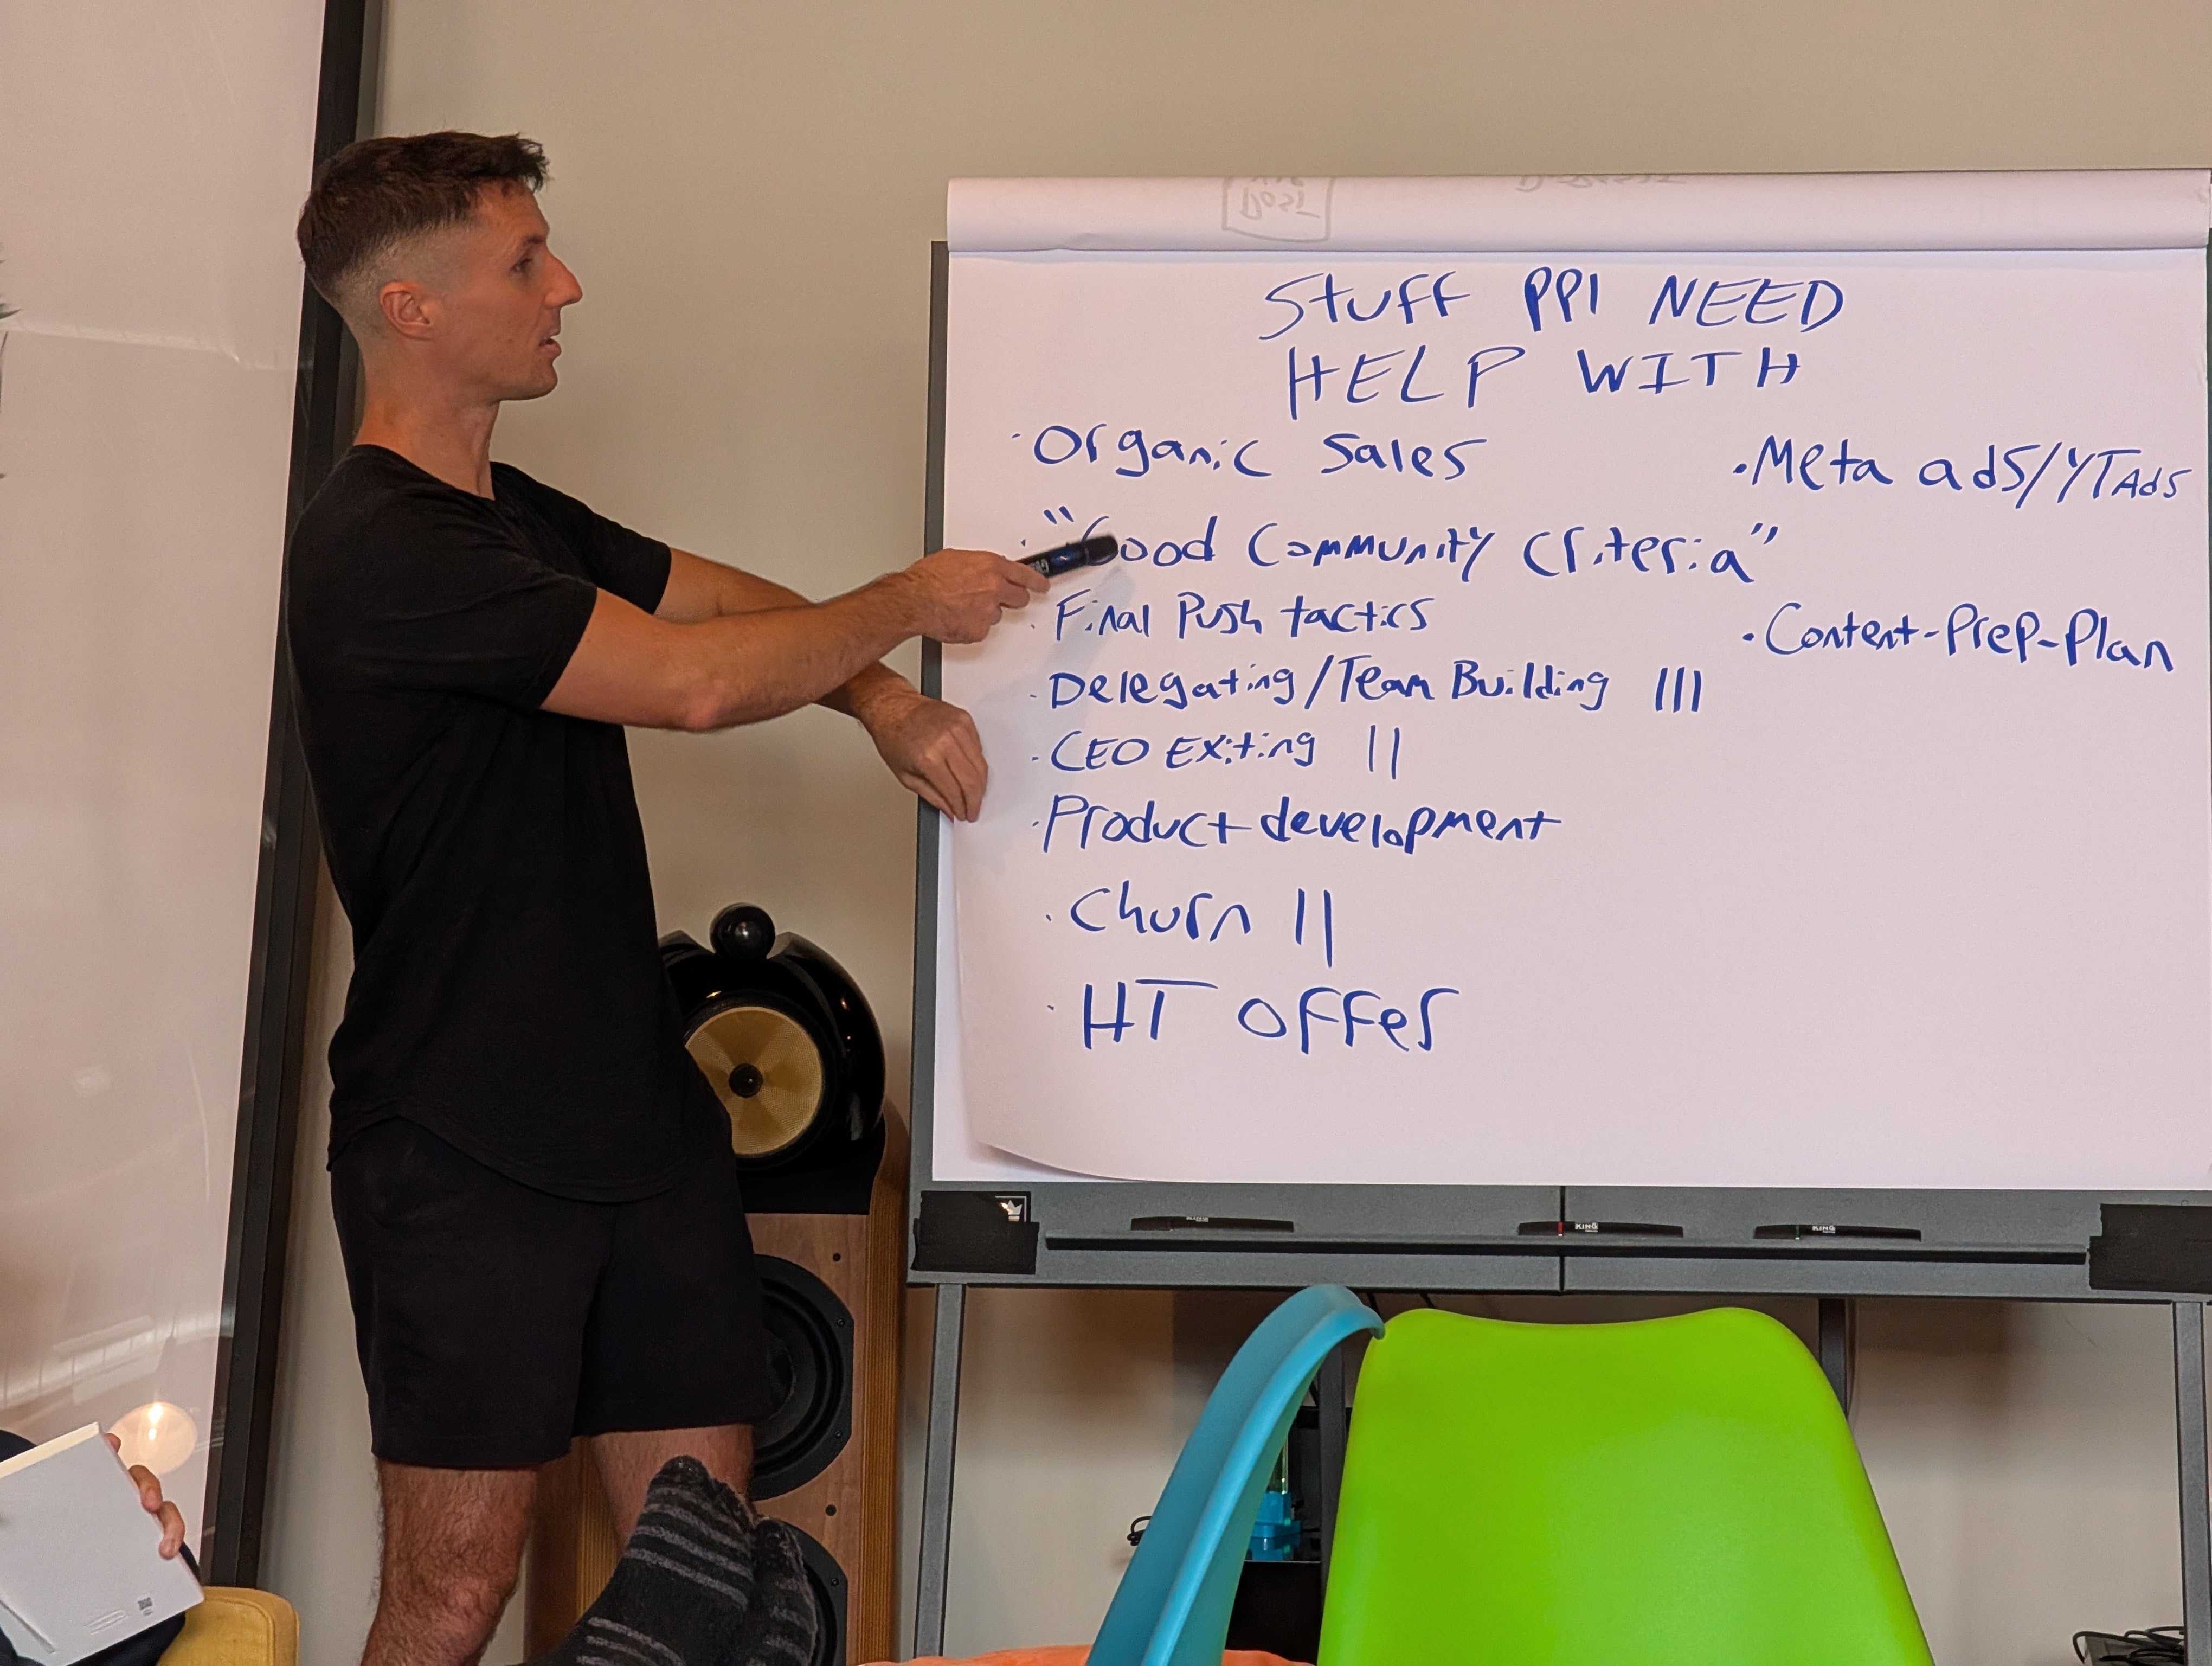 STUFF PPl NEED
HELP WITH
· Organic Sales
· "Good Community Criteria"
· Final Push tactics
· Delegating/Team Building |||
· CEO Exiting ||
· Product development
· Churn ||
· HT Offer
· Meta ads/YT Ads
· Content-Prep-Plan
KING
KING